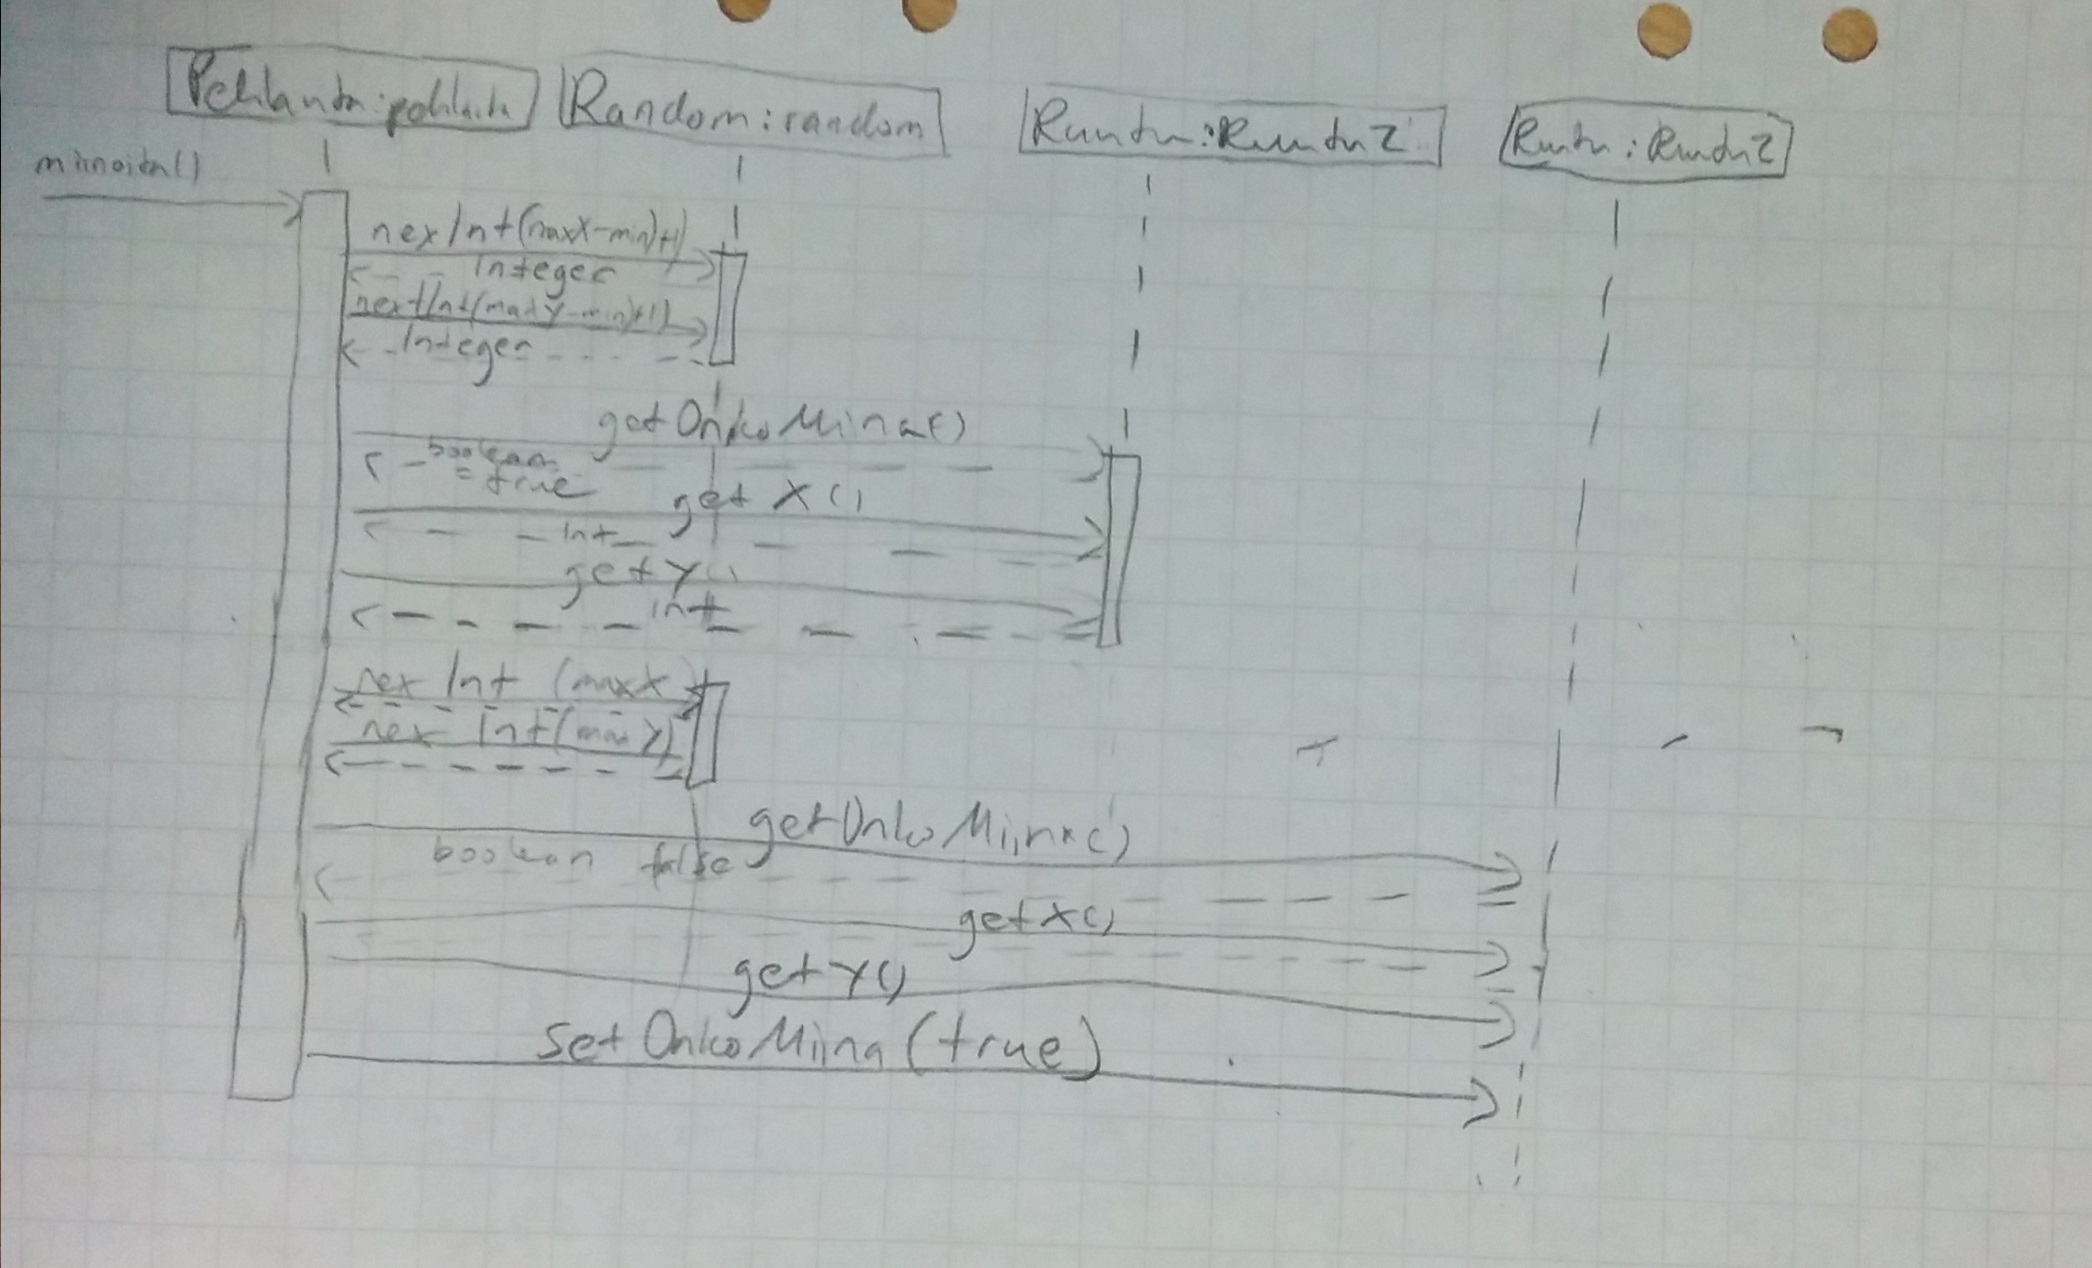 Random:random
Ruutu:Ruutu2
Ruutu:Ruutu2
miinoita()
nexInt(maxX-min)+1)
Integer
nextInt(maxY-min)+1)
Integer
getOnkoMiina()
boolean
= true
getX()
int
getY()
int
nexInt (maxX)
nexInt(maxY)
getOnkoMiina()
boolean false
getX()
getY()
setOnkoMiina(true)